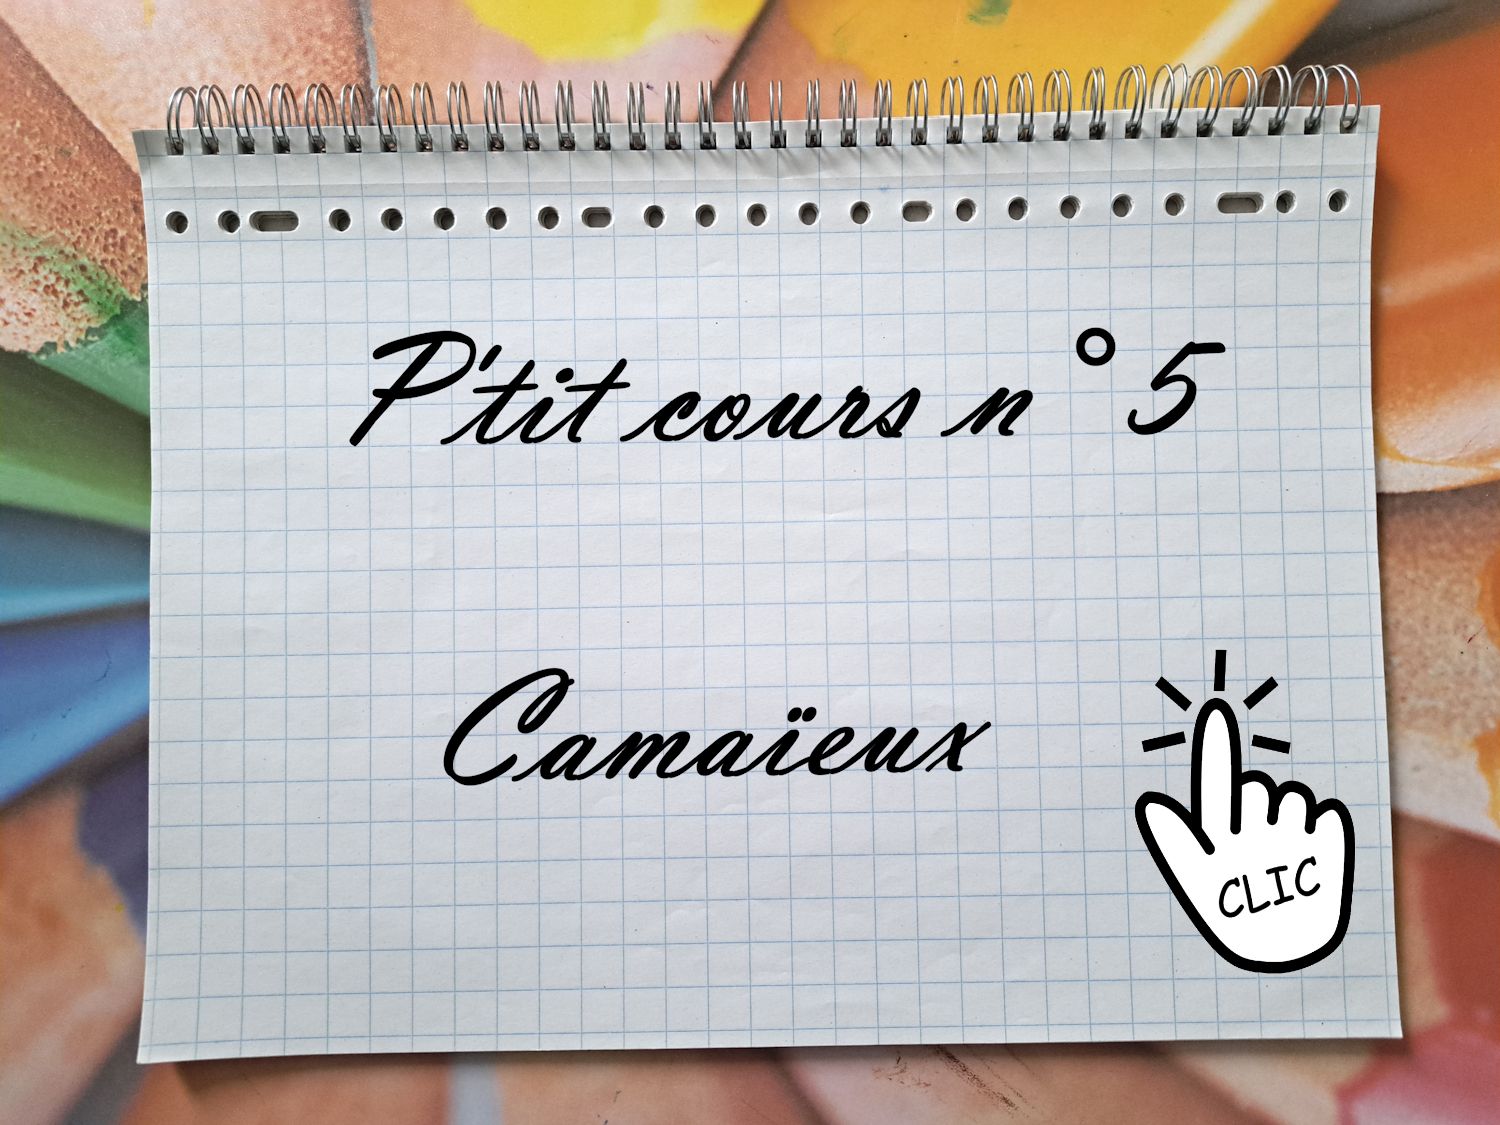 P'tit cours n°5
Camaïeux
CLIC